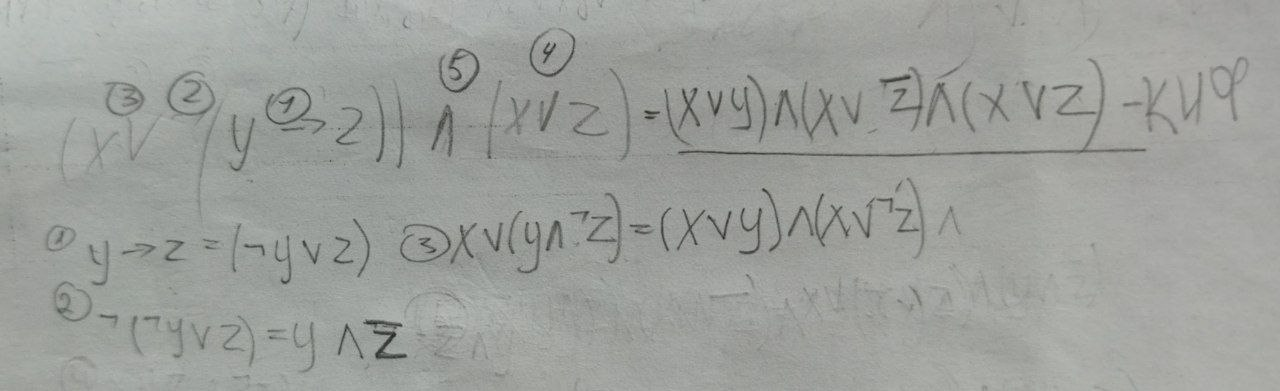 ③ ② ① ⑤ ④
(x∨ (y → z)) ∧ (x∨z) = (x∨y)∧(x∨z̅)∧(x∨z) – КНФ
① y→z = (¬y∨z) ③ x∨(y∧¬z) = (x∨y)∧(x∨¬z) ∧
② ¬(¬y∨z) = y ∧ z̅